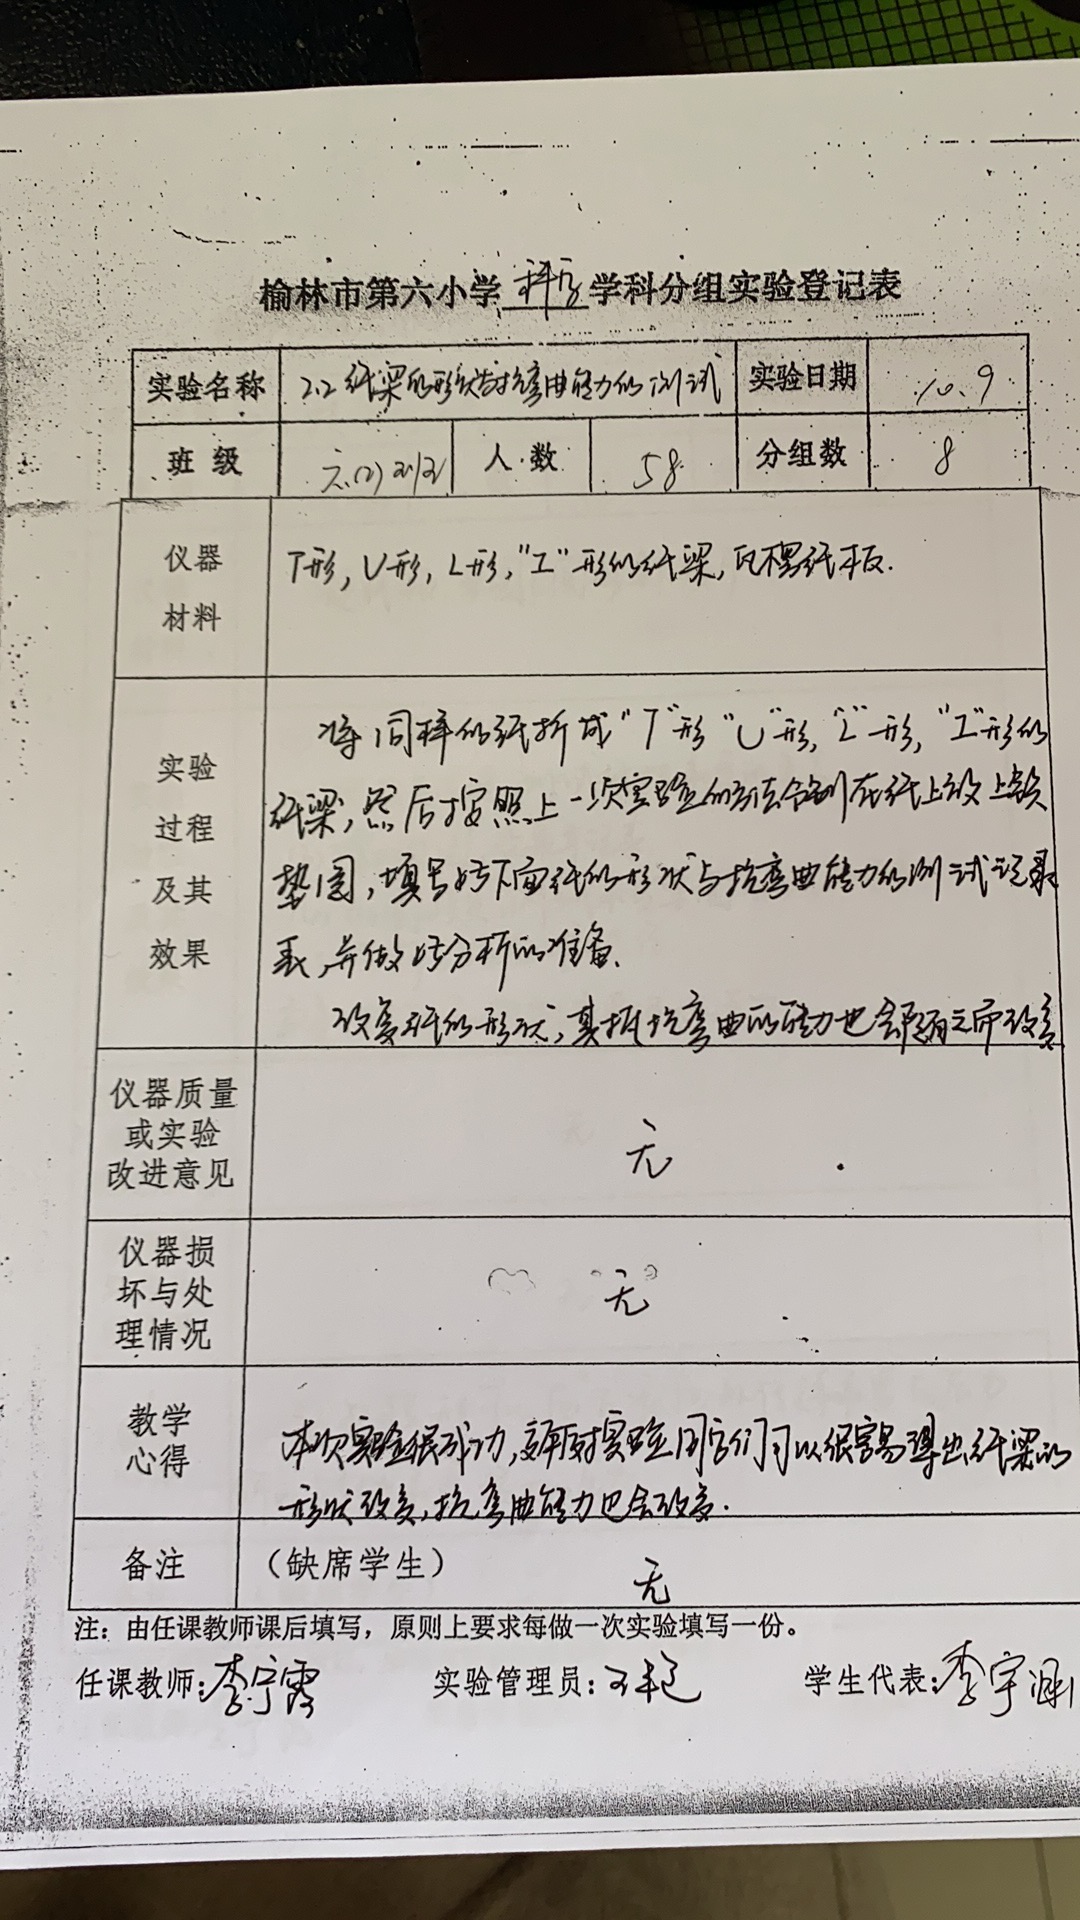 榆林市第六小学科学学科分组实验登记表
实验名称 2.2纸梁的形状与抗弯曲能力的测试 实验日期 10.9
班级 六(2) 人数 58 分组数 8
仪器
材料
T形,U形,L形,"工"形的纸梁,瓦楞纸板.
实验
过程
及其
效果
将同样的纸折成"T"形"U"形,"L"形,"工"形的
纸梁,然后按照上一次实验的方法分别在纸上放上铁
垫圈,填写好下面纸的形状与抗弯曲能力的测试记录
表,并做好分析的准备.
改变纸的形状,其抵抗弯曲的能力也会随之而改变
仪器质量
或实验
改进意见
无
仪器损
坏与处
理情况
无
教学
心得
本次实验很成功,实验同学们可以很容易得出纸梁的
形状改变,抗弯曲能力也会改变.
备注 (缺席学生) 无
注:由任课教师课后填写,原则上要求每做一次实验填写一份。
任课教师:李宁霞 实验管理员: 学生代表:李宇